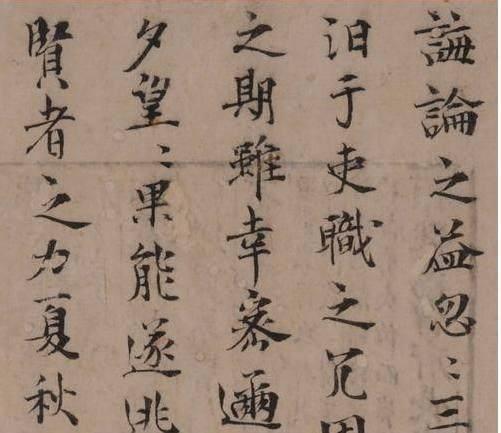 講論之益忽〻三
汩于吏職之冗
之期雖幸密邇
夕望〻果能遂
賢者之力夏秋